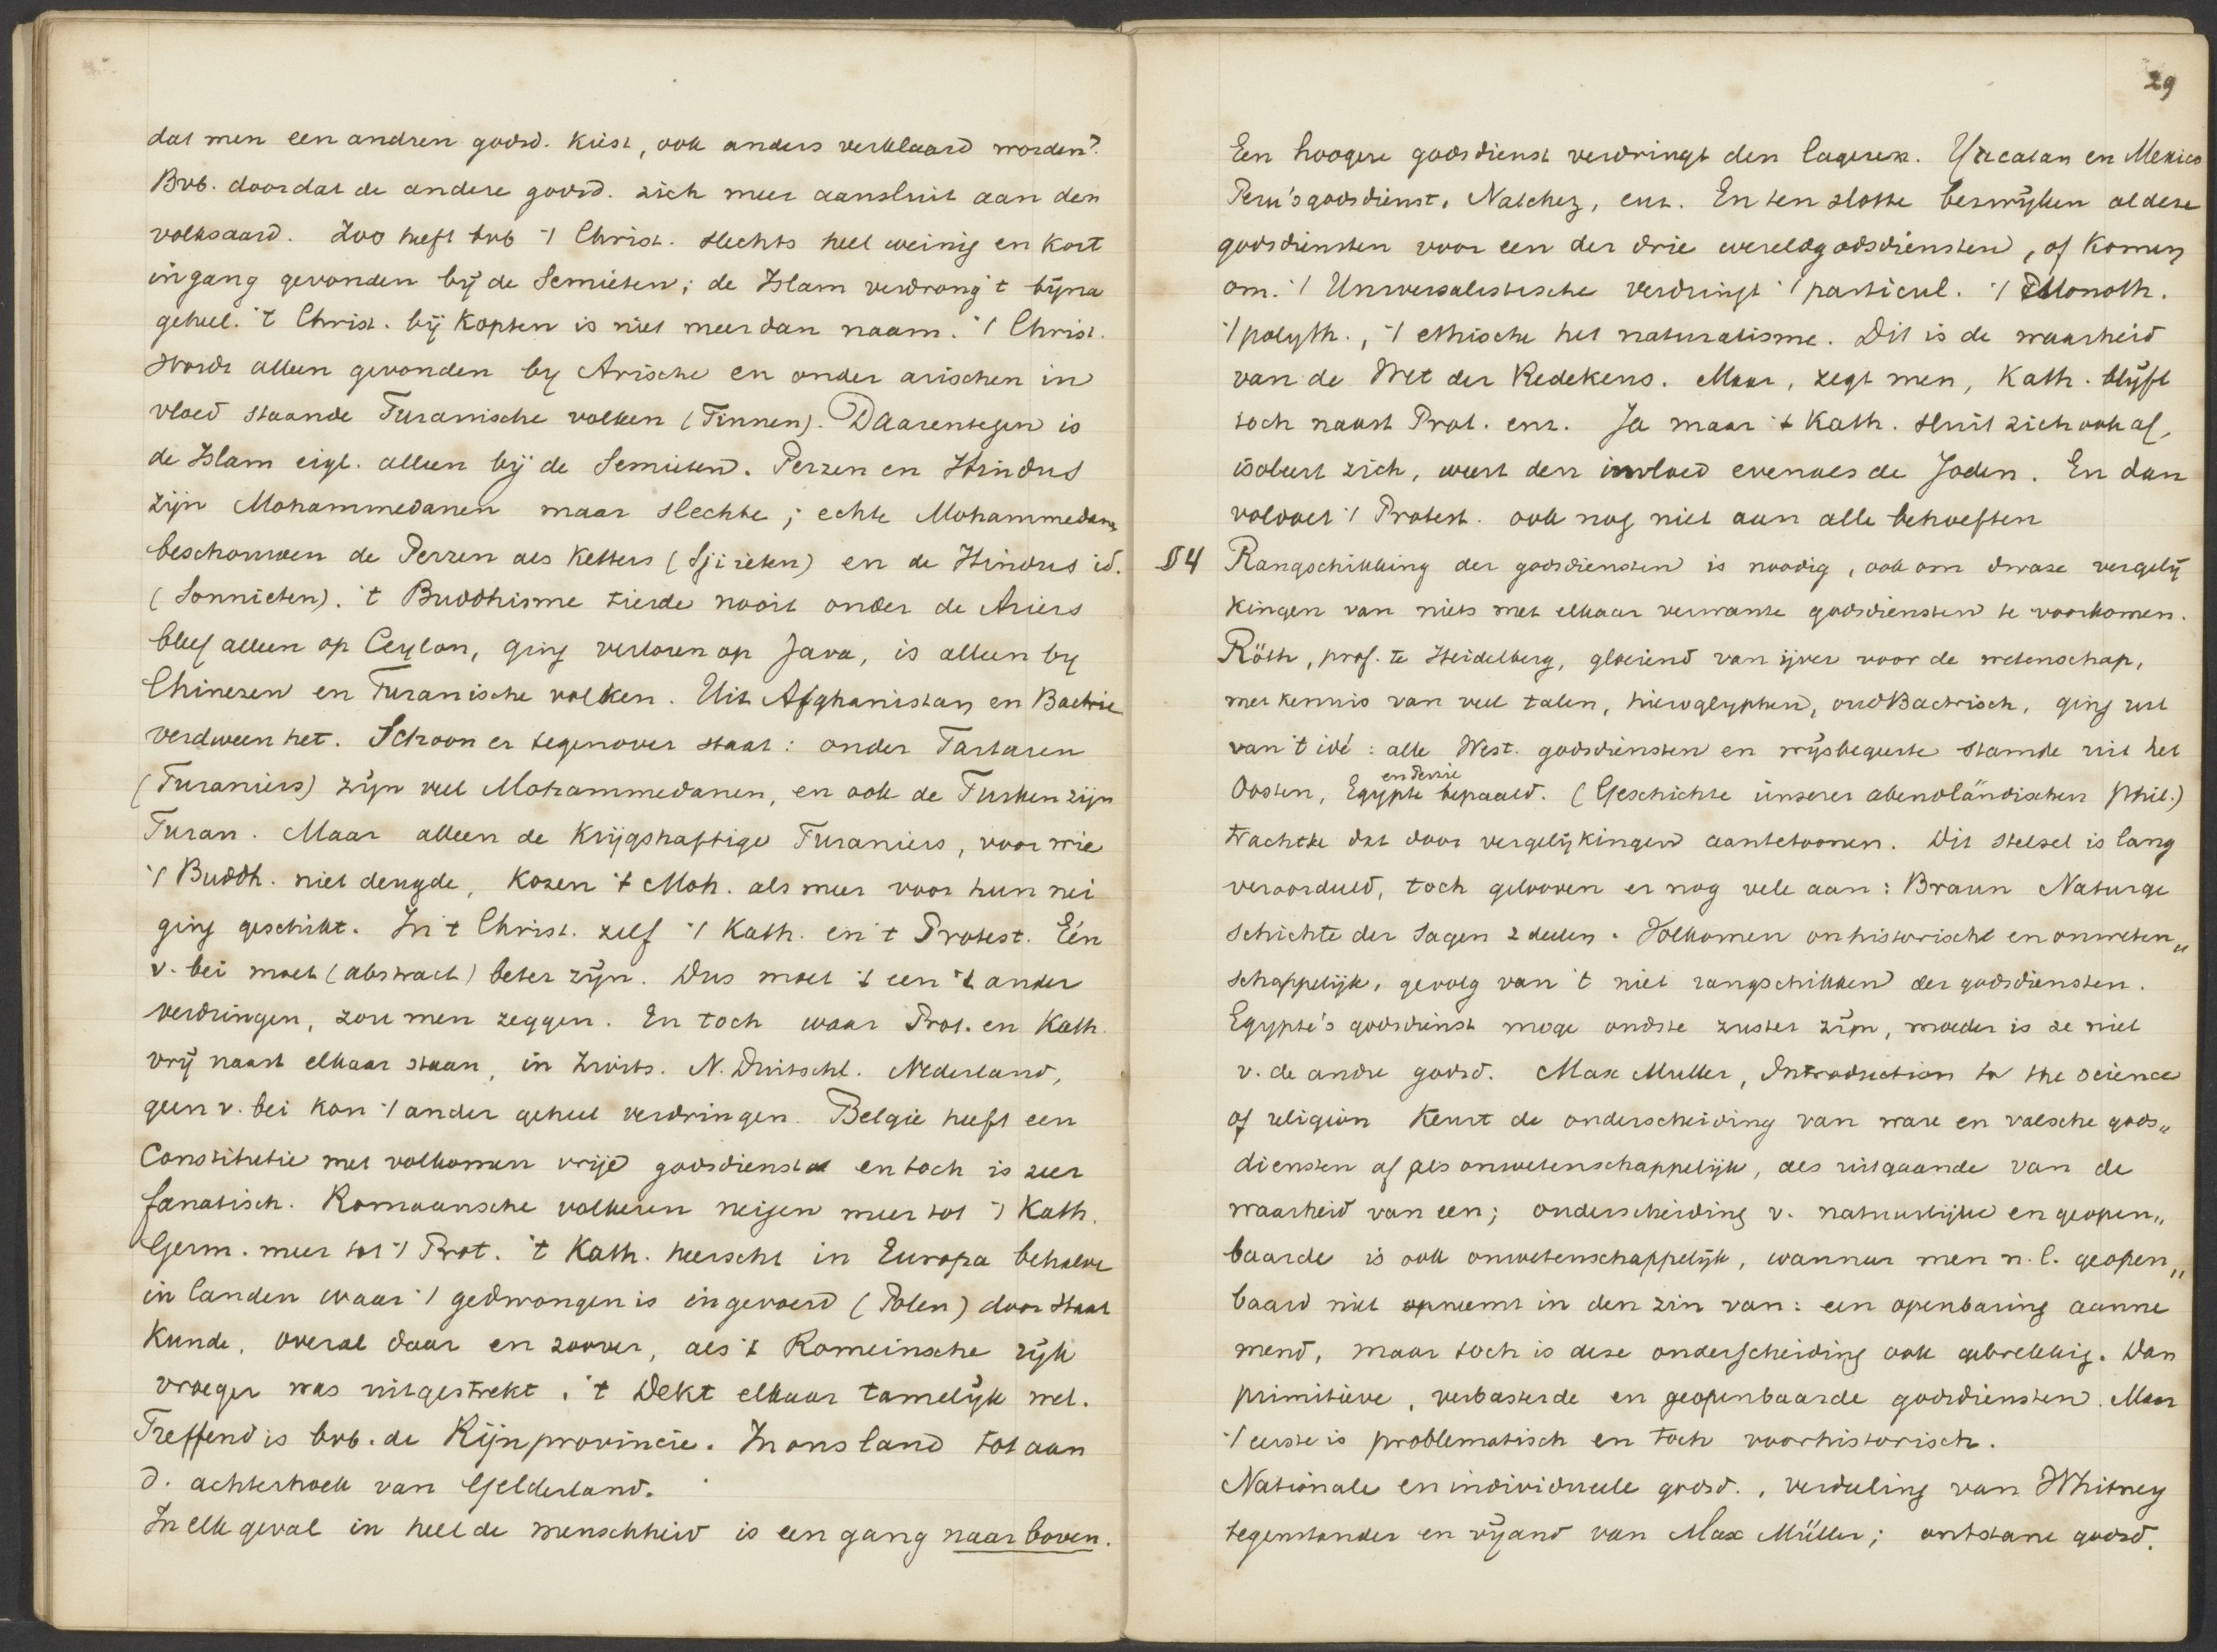 dat men een andren godsd. kiest, ook anders verklaard worden?
Bvb. doordat de andere godsd. zich meer aansluit aan den
volksaard. Zoo heeft bvb 't Christ. slechts heel weinig en kort
ingang gevonden bij de Semieten; de Islam verdrong 't bijna
geheel. 't Christ. bij Kopten is niet meer dan naam. 't Christ.
wordt alleen gevonden bij Arische en onder arischen in
vloed staande Turanische volken (Finnen). Daarentegen is
de Islam eigl. alleen bij de Semieten. Perzen en Hindus
zijn Mohammedanen maar slechte; echte Mohammedanen
beschouwen de Perzen als ketters (Sjiieten) en de Hindus id.
(Sonnieten). 't Buddhisme tierde nooit onder de Ariers
bleef alleen op Ceylon, ging verloren op Java, is alleen by
Chinezen en Turanische volken. Uit Afghanistan en Bactrie
verdween het. Schoon er tegenover staat: onder Tartaren
(Turaniers) zijn veel Mohammedanen, en ook de Turken zijn
Turan. Maar alleen de krijgshaftige Turaniers, voor wie
't Buddh. niet deugde, kozen 't Moh. als meer voor hun nei
ging geschikt. In 't Christ. zelf 't Kath. en 't Protest. Eén
v. bei moet (abstract) beter zijn. Dus moet 't een 't ander
verdringen, zou men zeggen. En toch waar Prot. en Kath.
vrij naast elkaar staan, in Zwits. N. Duitschl. Nederland,
geen v. bei kan 't ander geheel verdringen. Belgie heeft een
Constitutie met volkomen vrije godsdienst en toch is zeer
fanatisch. Romaansche volkeren neigen meer tot 't Kath.
Germ. meer tot 't Prot. 't Kath. heerscht in Europa behalve
in landen waar 't gedwongen is ingevoerd (Polen) door staat
kunde, overal daar en zoover, als 't Romeinsche rijk
vroeger was uitgestrekt, 't Dekt elkaar tamelijk wel.
Treffend is bvb. de Rijnprovincie. In ons land tot aan
d. achterhoek van Gelderland.
In elk geval in heel de menschheid is een gang naar boven.
29
Een hoogere godsdienst verdringt den lageren. Yucatan en Mexico
Peru's godsdienst, Natchez, enz. En ten slotte bezwijken al deze
godsdiensten voor een der drie wereldgodsdiensten, of komen
om. 't Universalistische verdringt 't particul. 't Monoth.
't polyth., 't ethische het naturalisme. Dit is de waarheid
van de Wet der Redekens. Maar, zegt men, Kath. blijft
toch naast Prot. enz. Ja maar 't Kath. sluit zich ook af,
isoleert zich, weert den invloed evenals de Joden. En dan
voldoet 't Protest. ook nog niet aan alle behoeften
§4 Rangschikking der godsdiensten is noodig, ook om dwaze vergelij
kingen van niets met elkaar verwante godsdiensten te voorkomen.
Röth, prof. te Heidelberg, gloeiend van ijver voor de wetenschap,
met kennis van veel talen, hieroglyphen, oudBactrisch, ging uit
van 't idé: alle West. godsdiensten en wijsbegeerte stamde uit het
Oosten, Egypte en Perzie bepaald. (Geschichte unserer abendländischen Phil.)
trachtte dat door vergelijkingen aantetoonen. Dit stelsel is lang
veroordeeld, toch gelooven er nog vele aan: Braun Naturge
schichte der Sagen 2 deelen. Volkomen onhistorisch en onweten„
schappelijk, gevolg van 't niet rangschikken der godsdiensten.
Egypte's godsdienst moge oudste zuster zijn, moeder is ze niet
v. de andre godsd. Max Muller, Introduction to the science
of religion keurt de onderscheiding van ware en valsche gods„
diensten af als onwetenschappelijk, als uitgaande van de
waarheid van een; onderscheiding v. natuurlijke en geopen„
baarde is ook onwetenschappelijk, wanneer men n.l. geopen„
baard niet opneemt in den zin van: een openbaring aanne
mend, maar toch is deze onderscheiding ook gebrekkig. Dan
primitieve, verbasterde en geopenbaarde godsdiensten. Maar
't eerste is problematisch en toch voorhistorisch.
Nationale en individueele godsd., verdeeling van Whitney
tegenstander en vijand van Max Müller; ontstane godsd.